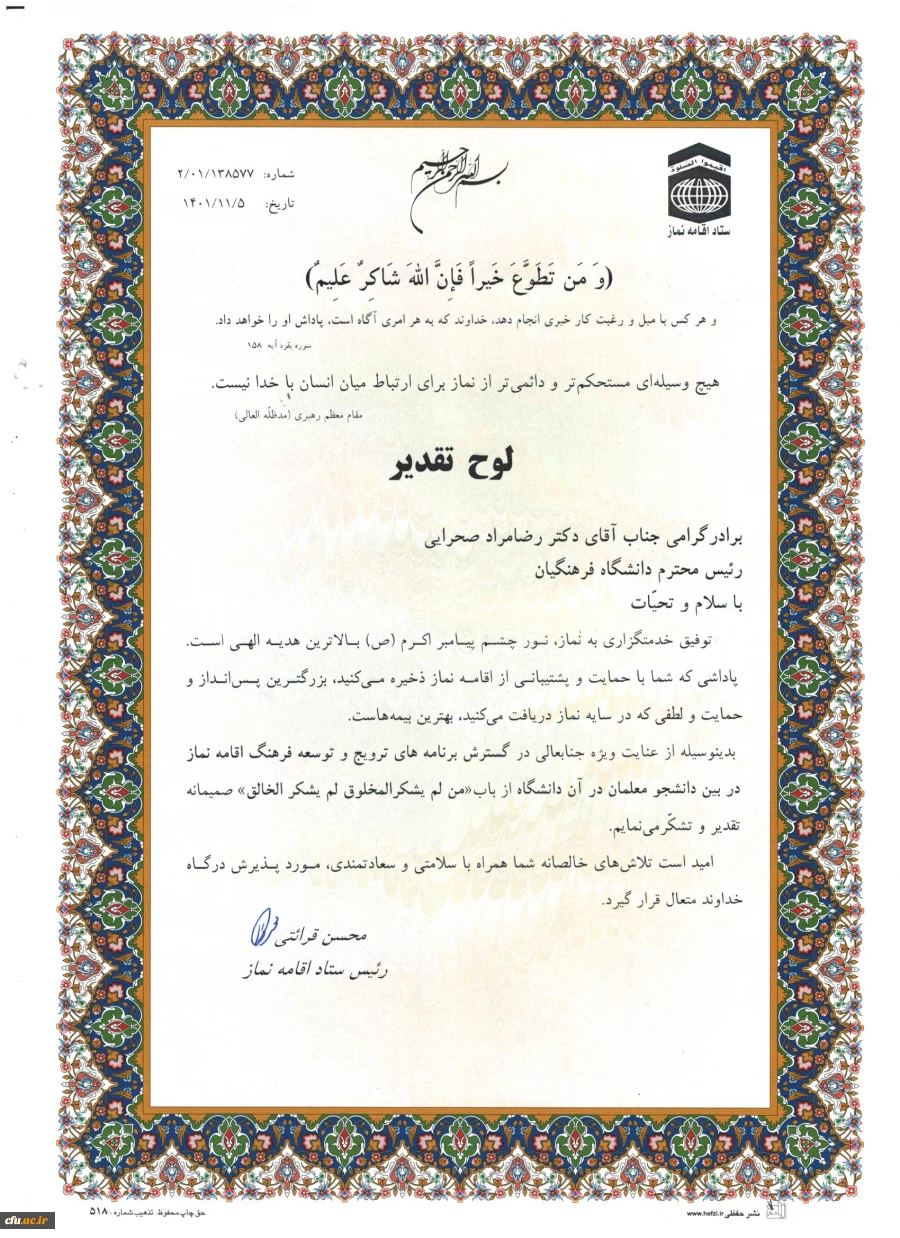 اقیموا الصلوة
ستاد اقامه نماز
بسم الله الرحمن الرحیم
شماره: ۲/۰۱/۱۳۸۵۷۷
تاریخ: ۱۴۰۱/۱۱/۵
(وَ مَن تَطَوَّعَ خَیراً فَإِنَّ اللهَ شَاکِرٌ عَلِیمٌ)
و هر کس با میل و رغبت کار خیری انجام دهد، خداوند که به هر امری آگاه است، پاداش او را خواهد داد.
سوره بقره آیه ۱۵۸
هیچ وسیله‌ای مستحکم‌تر و دائمی‌تر از نماز برای ارتباط میان انسان با خدا نیست.
مقام معظم رهبری (مدظلّه العالی)
لوح تقدیر
برادر گرامی جناب آقای دکتر رضامراد صحرایی
رئیس محترم دانشگاه فرهنگیان
با سلام و تحیّات
توفیق خدمتگزاری به نماز، نور چشم پیامبر اکرم (ص) بالاترین هدیه الهی است.
پاداشی که شما با حمایت و پشتیبانی از اقامه نماز ذخیره می‌کنید، بزرگترین پس‌انداز و
حمایت و لطفی که در سایه نماز دریافت می‌کنید، بهترین بیمه‌هاست.
بدینوسیله از عنایت ویژه جنابعالی در گسترش برنامه های ترویج و توسعه فرهنگ اقامه نماز
در بین دانشجو معلمان در آن دانشگاه از باب«من لم یشکرالمخلوق لم یشکر الخالق» صمیمانه
تقدیر و تشکّرمی‌نمایم.
امید است تلاش‌های خالصانه شما همراه با سلامتی و سعادتمندی، مورد پذیرش درگاه
خداوند متعال قرار گیرد.
محسن قرائتی
رئیس ستاد اقامه نماز
نشر حفظی www.hefzi.ir
حق چاپ محفوظ. تذهیب شماره: ۵۱۸
cfu.ac.ir